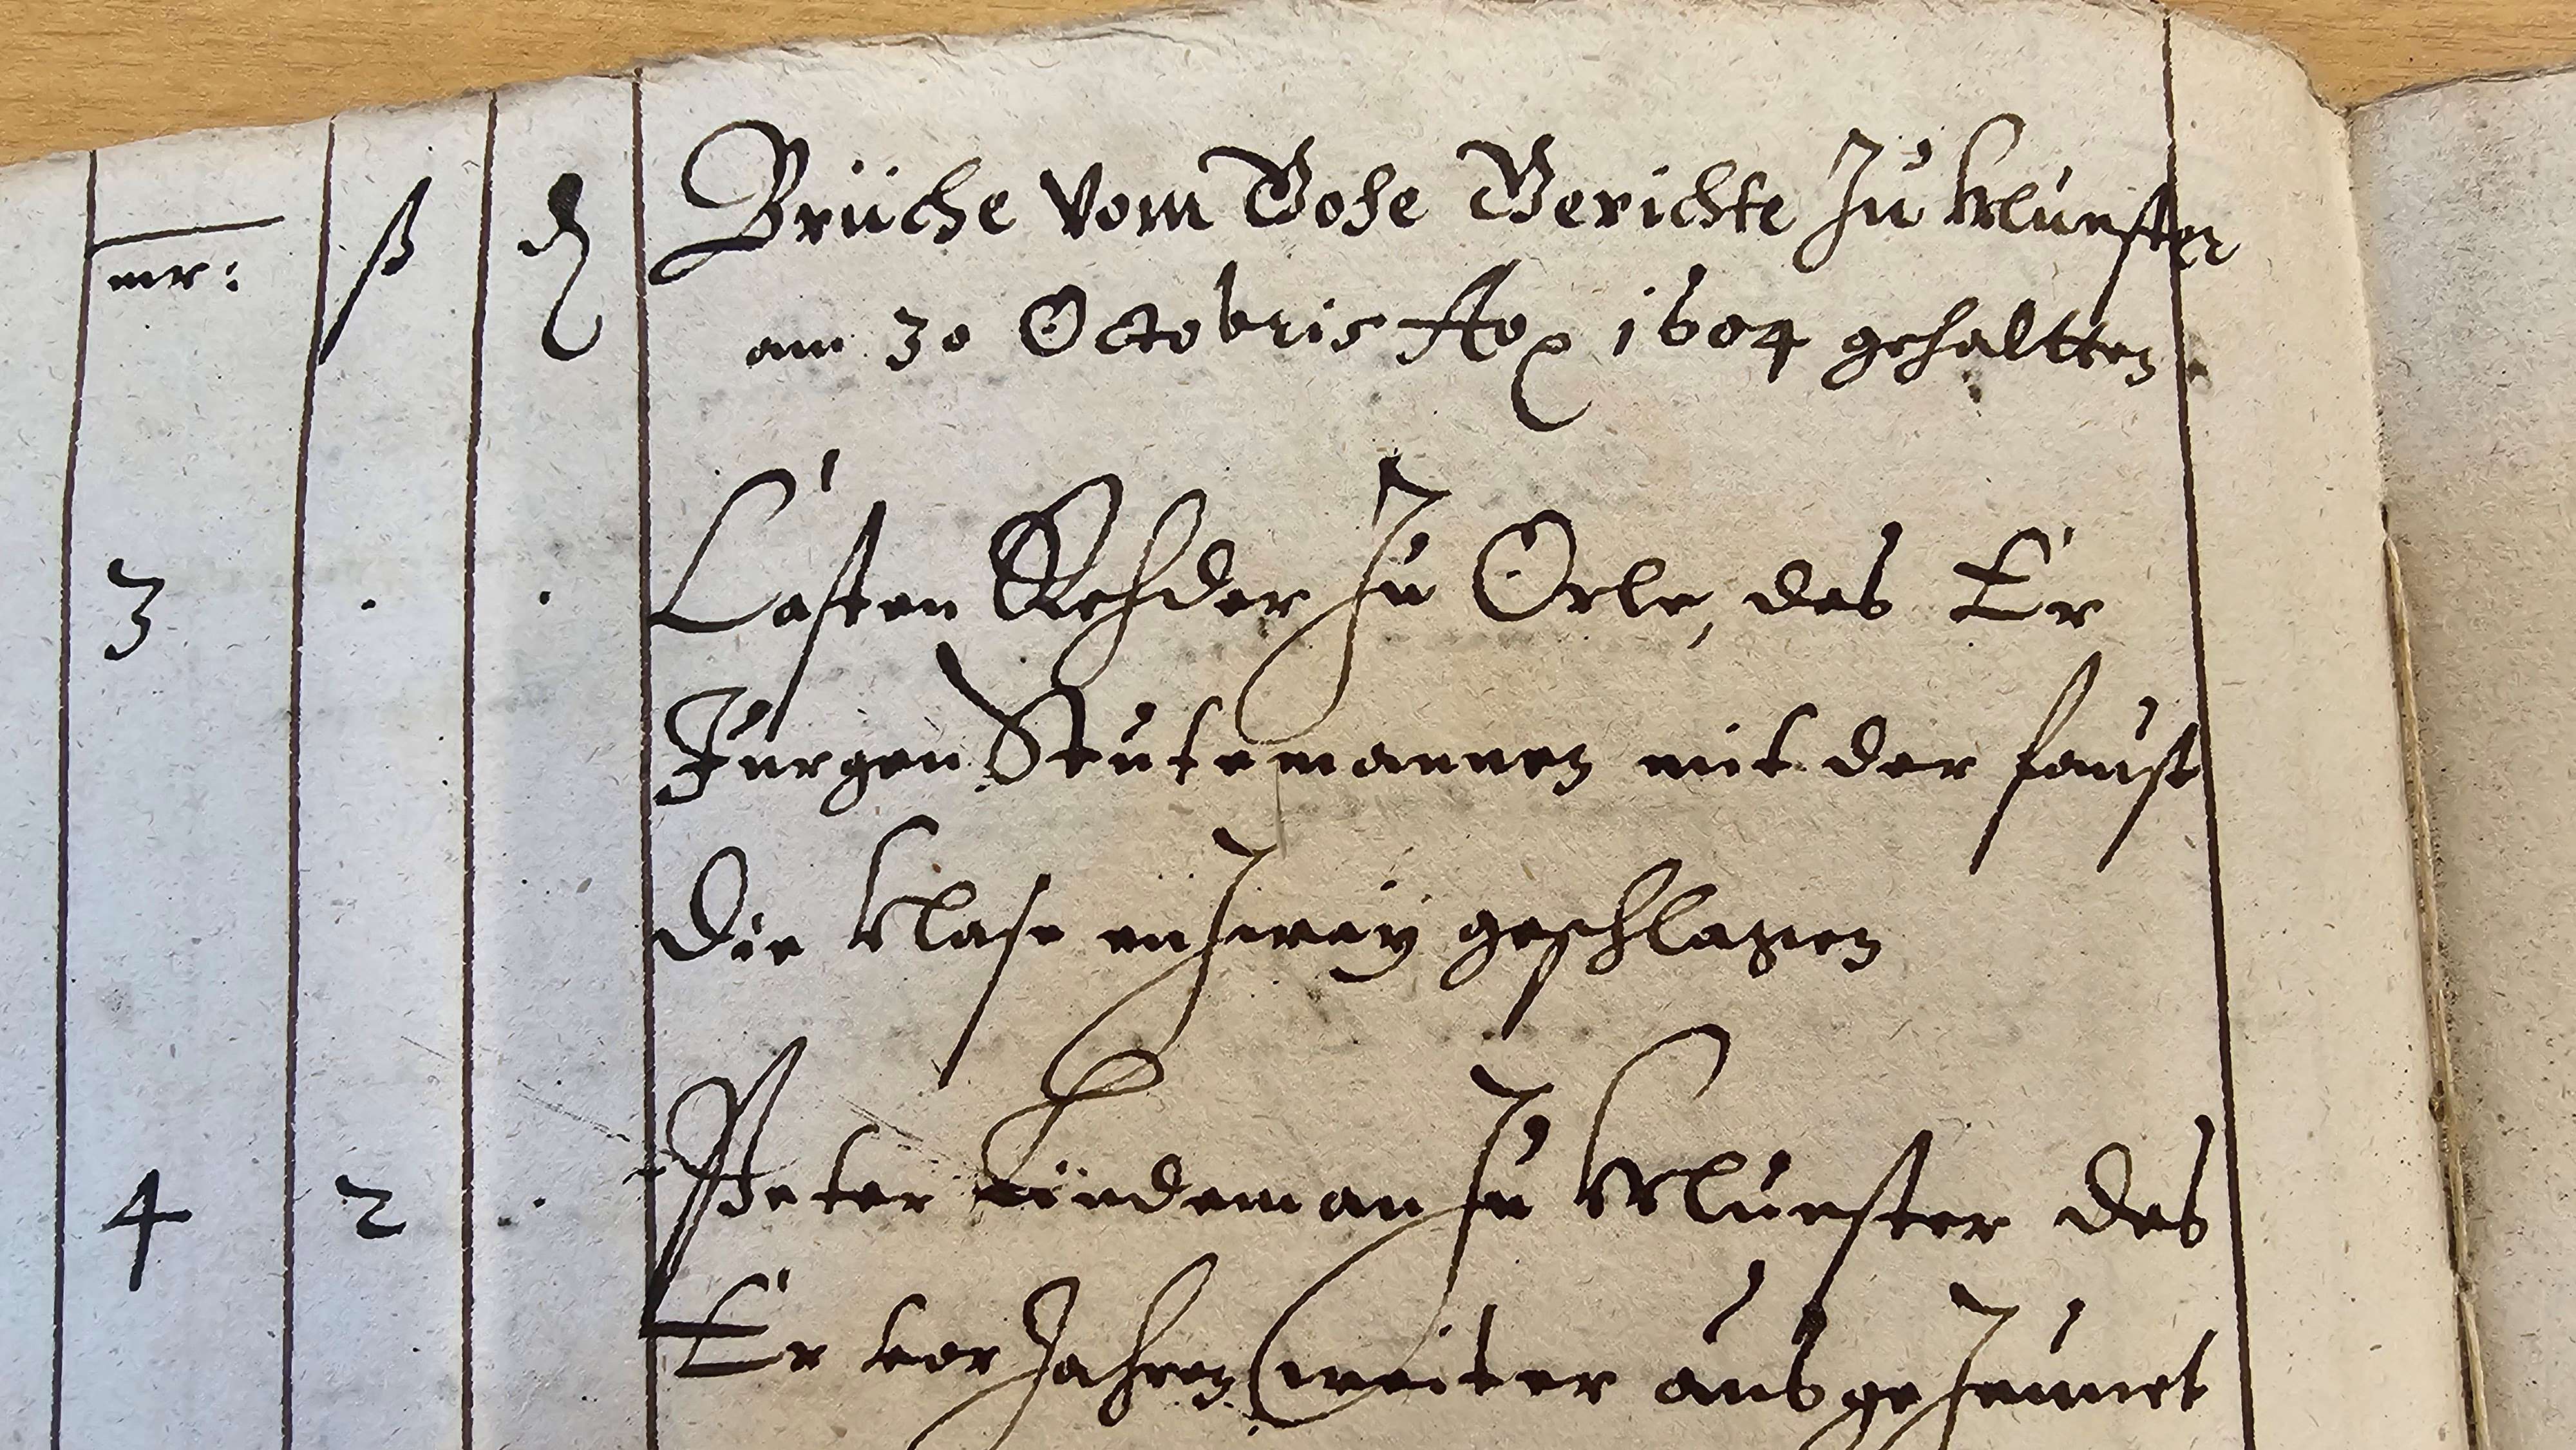 mr: ß ₰ Brüche vom Gohe Gerichte Zu Munster
am 30 Octobris Ao 1604 gehaltten
3 . . Casten Rehder zu Örle, des Er
Jurgen Stutemannen mit der faust
die Nase enzwey geschlagen
4 2 . Peter Lindeman zu Munster des
Er vor Jahren weiter ausgezeunet